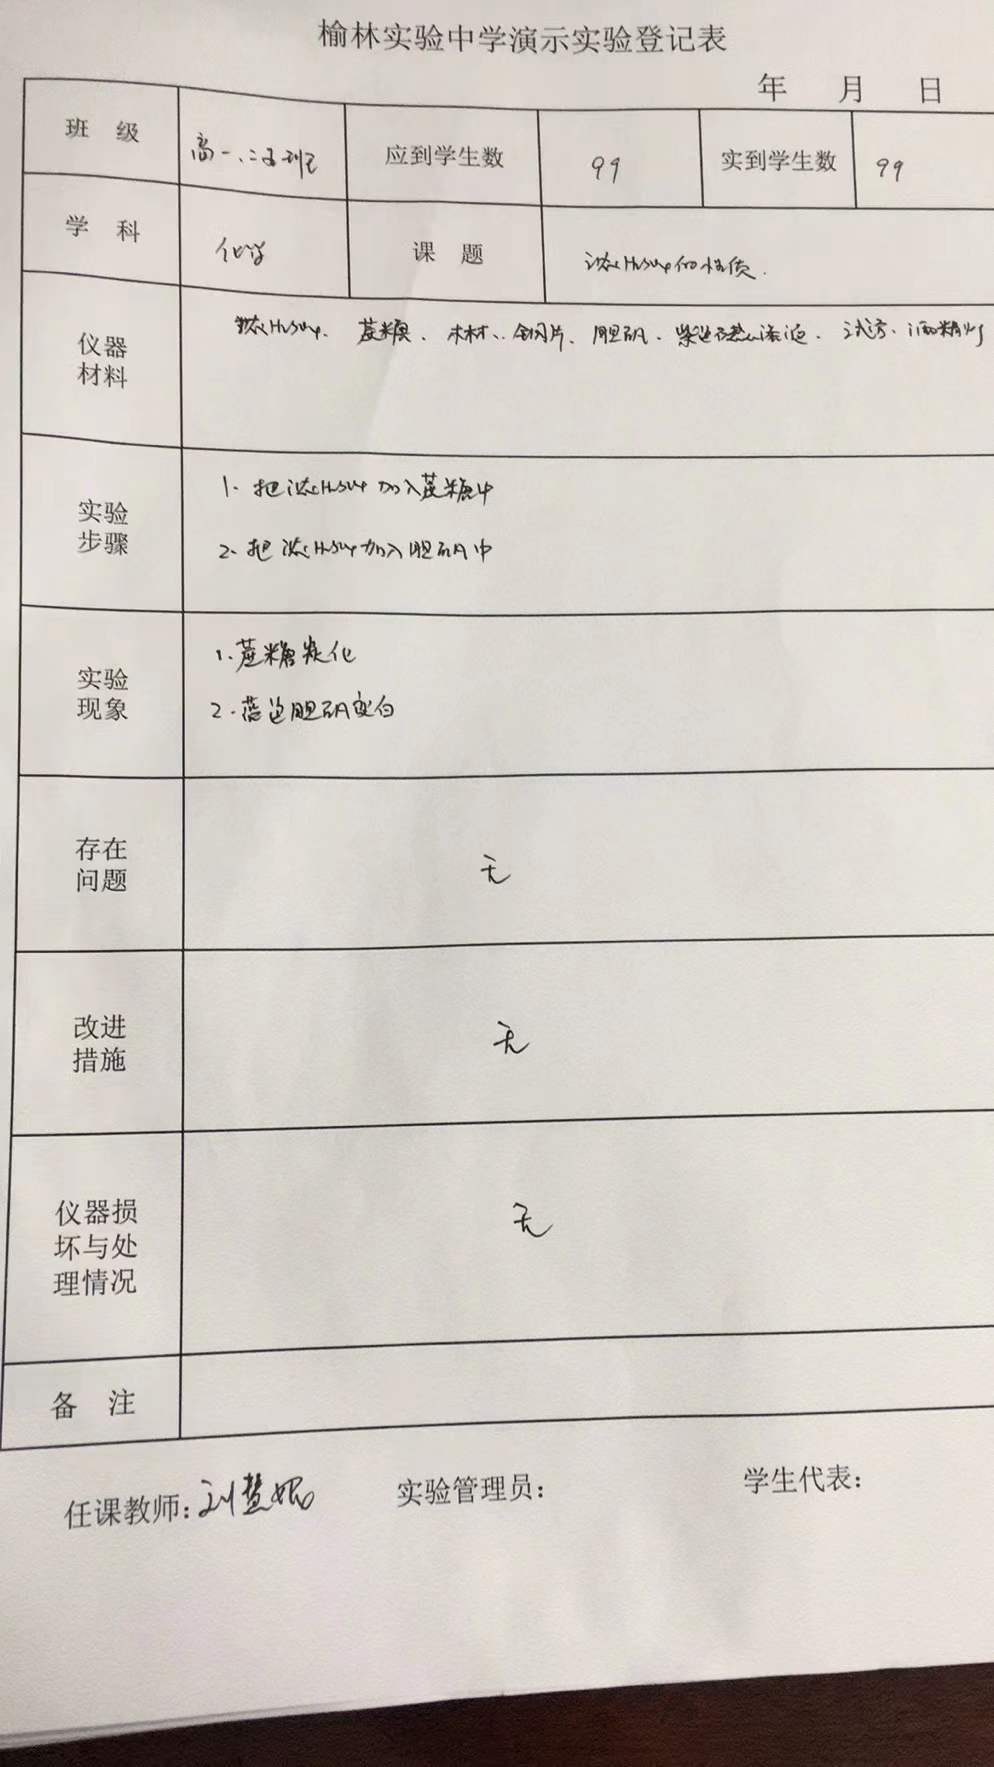 榆林实验中学演示实验登记表
年 月 日
班 级 高一.二五班 应到学生数 99 实到学生数 99
学 科 化学 课 题 浓H₂SO₄的性质.
仪器
材料
浓H₂SO₄、蔗糖、木材、铜片、胆矾、紫色石蕊溶液、试管、酒精灯
实验
步骤
1. 把浓H₂SO₄加入蔗糖中
2. 把浓H₂SO₄加入胆矾中
实验
现象
1. 蔗糖炭化
2. 蓝色胆矾变白
存在
问题
无
改进
措施
无
仪器损
坏与处
理情况
无
备 注
任课教师: 刘慧妮 实验管理员: 学生代表: